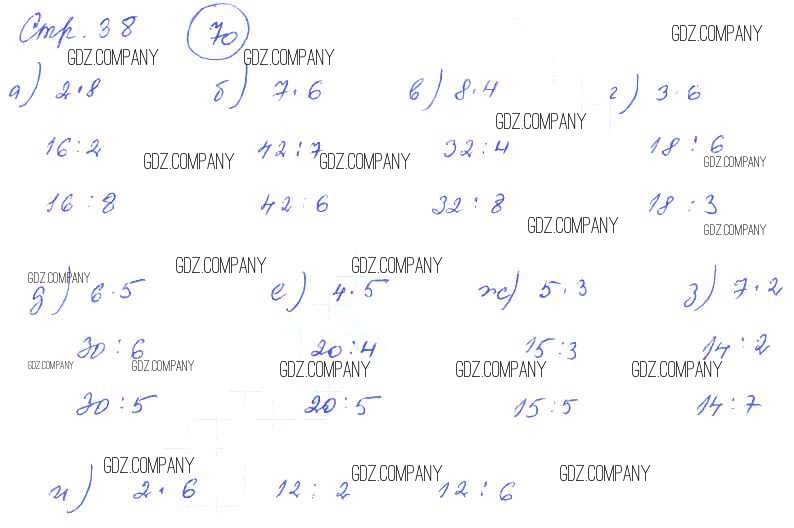 Стр. 38 70
GDZ.COMPANY GDZ.COMPANY GDZ.COMPANY
а) 2·8 б) 7·6 в) 8·4 г) 3·6
GDZ.COMPANY
16:2 42:7 32:4 18:6
GDZ.COMPANY GDZ.COMPANY GDZ.COMPANY
16:8 42:6 32:8 18:3
GDZ.COMPANY GDZ.COMPANY
GDZ.COMPANY GDZ.COMPANY GDZ.COMPANY
д) 6·5 е) 4·5 ж) 5·3 з) 7·2
30:6 20:4 15:3 14:2
GDZ.COMPANY GDZ.COMPANY GDZ.COMPANY GDZ.COMPANY GDZ.COMPANY
30:5 20:5 15:5 14:7
GDZ.COMPANY GDZ.COMPANY GDZ.COMPANY
и) 2·6 12:2 12:6